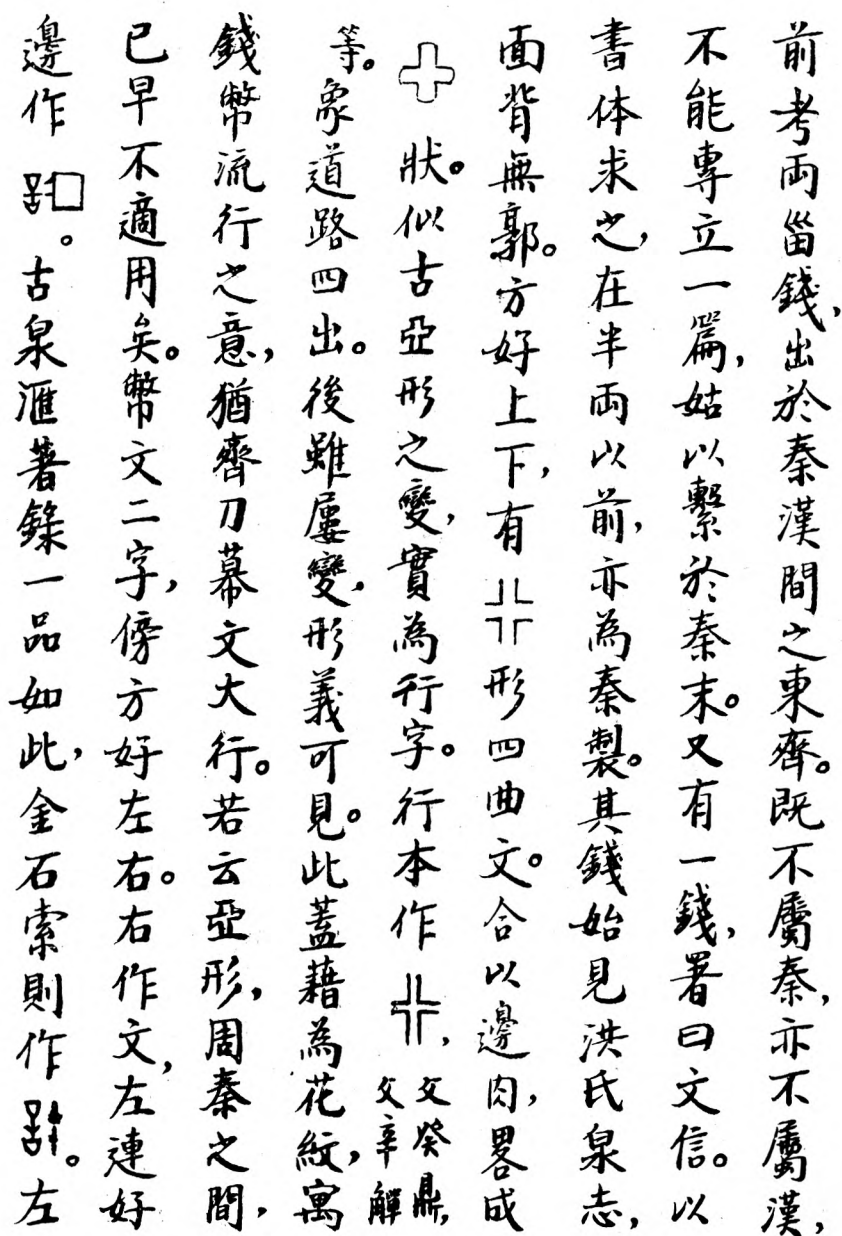 前考両甾錢，出於秦漢間之東齊。既不屬秦，亦不屬漢，
不能專立一篇，姑以繫於秦末。又有一錢，署曰文信。以
書体求之，在半両以前，亦為秦製。其錢始見洪氏泉志，
面背無郭。方好上下，有形四曲文。合以邊肉，畧成
狀。似古亞形之變，實為行字。行本作，父癸鼎，父辛觶
等。象道路四出。後雖屢變，形義可見。此蓋藉為花紋，寓
錢幣流行之意，猶齊刀幕文大行。若云亞形，周秦之間，
已早不適用矣。幣文二字，傍方好左右。右作文，左連好
邊作。古泉滙著錄一品如此，金石索則作。左